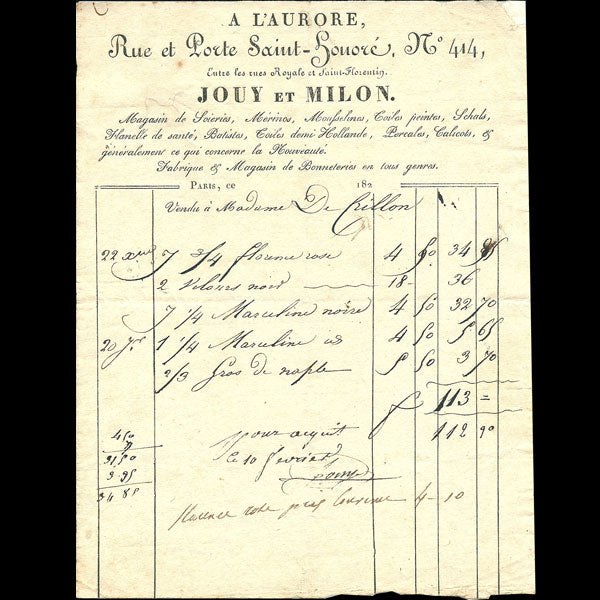 A L'AURORE,
Rue et Porte Saint-Honoré, N° 414,
Entre les rues Royale et Saint-Florentin.
JOUY ET MILON.
Magasin de Soieries, Mérinos, Mousselines, Toiles peintes, Schals,
Flanelle de santé, Batistes, Toiles demi Hollande, Percales, Calicots, &
généralement ce qui concerne la Nouveauté.
Fabrique & Magasin de Bonneteries en tous genres.
PARIS, ce 182
Vendu à Madame De Crillon
22 Xbre 7 3/4 florence rose 4 50 34 85
2 Velours noir 18 - 36
7 1/4 Marceline noire 4 50 32 70
20 Jr 1 1/4 Marceline id 4 50 5 65
2/3 Gros de naple 5 50 3 70
f 113 =
112 90
4 50
7
31 50
3 35
34 85
pour acquit
ce 10 février
florence rose 4 - 10